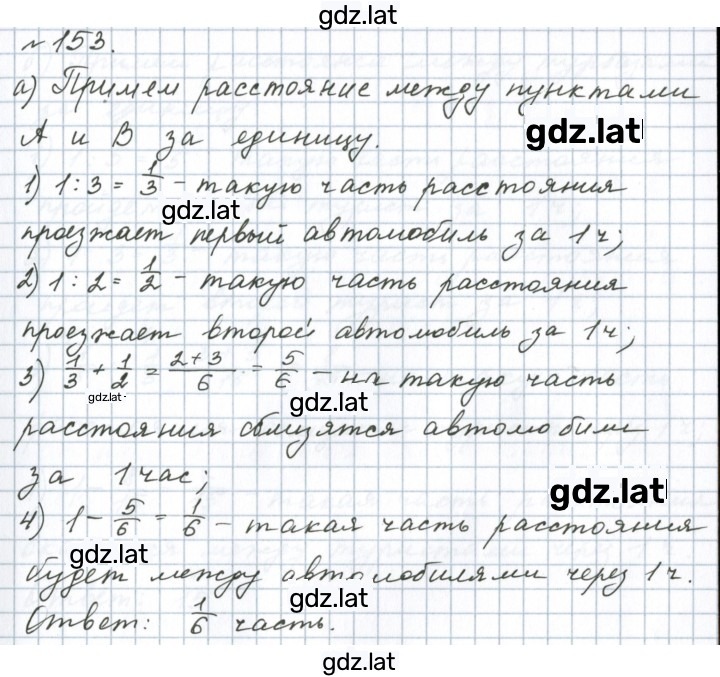 gdz.lat
№153.
а) Примем расстояние между пунктами
А и В за единицу.
gdz.lat
1) 1:3 = 1/3 - такую часть расстояния
gdz.lat
проезжает первый автомобиль за 1ч;
2) 1:2 = 1/2 - такую часть расстояния
проезжает второй автомобиль за 1ч;
3) 1/3 + 1/2 = 2+3/6 = 5/6 - на такую часть
gdz.lat
gdz.lat
расстояния сблизятся автомобили
за 1 час;
gdz.lat
4) 1 - 5/6 = 1/6 - такая часть расстояния
gdz.lat
будет между автомобилями через 1ч.
gdz.lat
Ответ: 1/6 часть.
gdz.lat